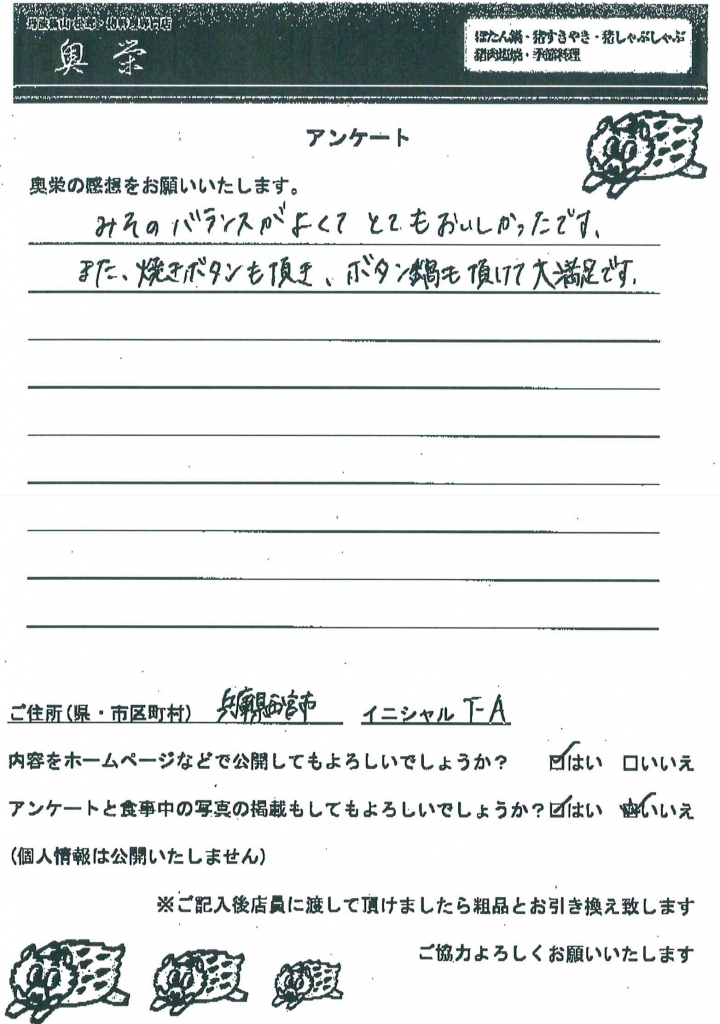 丹波篠山 松茸・猪料理専門店
奥栄
ぼたん鍋・猪すきやき・猪しゃぶしゃぶ
猪肉塩焼・季節料理
アンケート
奥栄の感想をお願いいたします。
みそのバランスがよくてとてもおいしかったです、
また、焼きボタンも頂き、ボタン鍋も頂けて大満足です.
ご住所(県・市区町村) 兵庫県西宮市 イニシャル T-A
内容をホームページなどで公開してもよろしいでしょうか? ☑はい □いいえ
アンケートと食事中の写真の掲載もしてもよろしいでしょうか? ☑はい ☑いいえ
(個人情報は公開いたしません)
※ご記入後店員に渡して頂けましたら粗品とお引き換え致します
ご協力よろしくお願いいたします